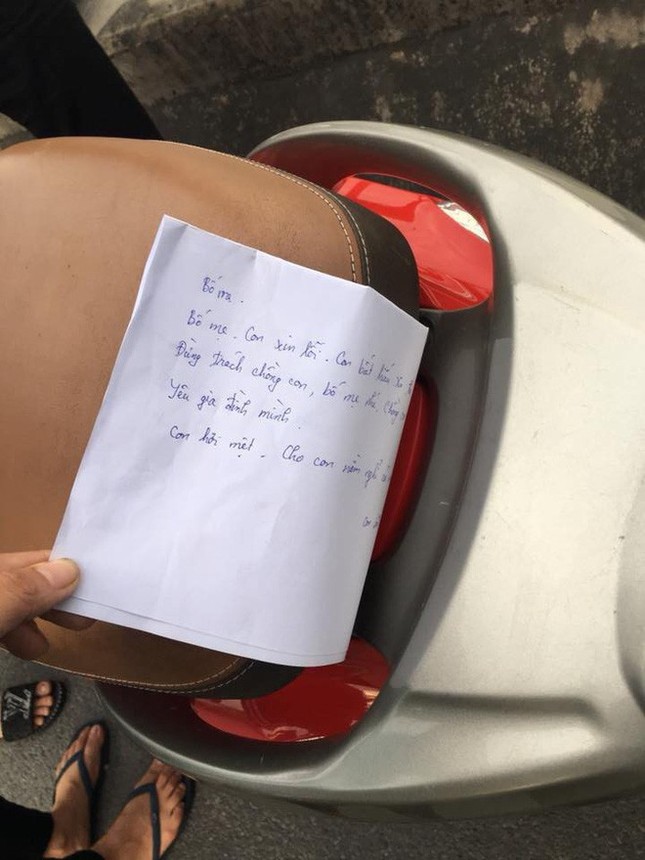 Bố mẹ.
Bố mẹ. Con xin lỗi. Con bất hiếu xin
Đừng trách chồng con, bố mẹ nhé. Chồng
Yêu gia đình mình.
Con hơi mệt. Cho con nằm nghỉ
con